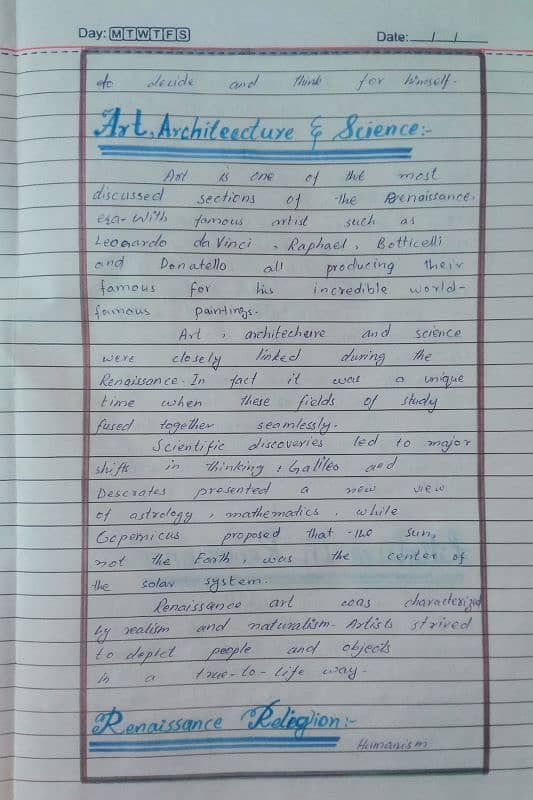 Day: M T W T F S Date: __/__/__
to decide and think for himself.
Art, Architeecture & Science:-
Art is one of the most
discussed sections of the Renaissance,
era. With famous artist such as
Leonardo da Vinci, Raphael, Botticelli
and Donatello all producing their
famous for his incredible world-
famous paintings.
Art, architecheure and science
were closely linked during the
Renaissance. In fact it was a unique
time when these fields of study
fused together seamlessly.
Scientific discoveries led to major
shifts in thinking, Galileo and
Descrates presented a new view
of astrology, mathematics, while
Copernicus proposed that the sun,
not the Earth, was the center of
the solar system.
Renaissance art was characterized
by realism and naturalism. Artists strived
to depict people and objects
in a true-to-life way.
Renaissance Relegion:-
Humanism